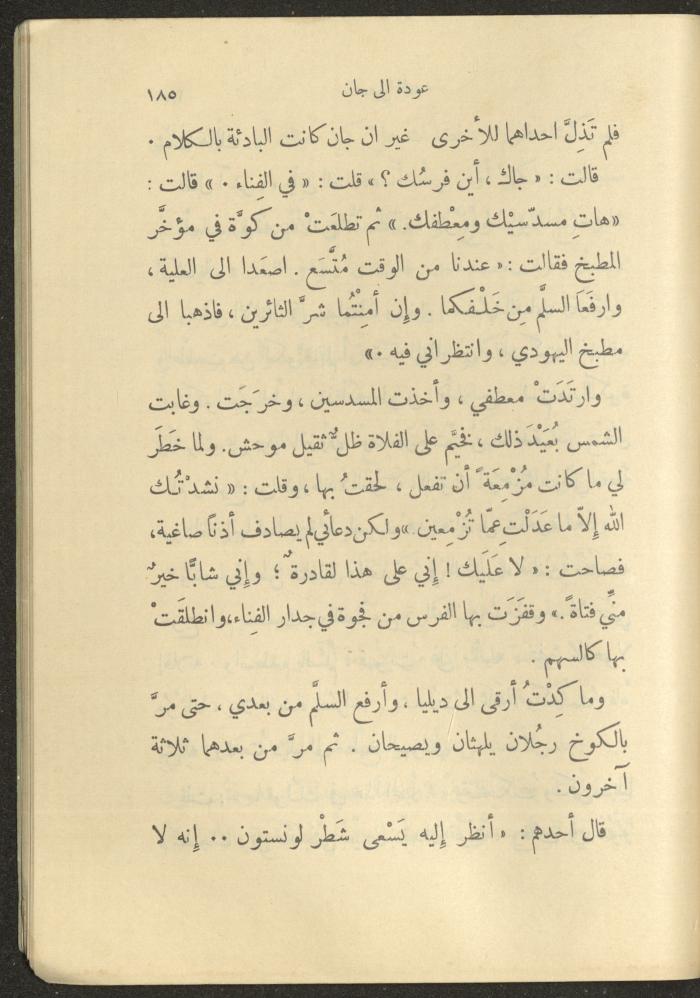 عودة الى جان ١٨٥
فلم تَذِلَّ احداهما للأخرى غير ان جان كانت البادئة بالكلام ٠
قالت : « جاك ، أين فرسُك ؟ » قلت : « في الفِناء ٠ » قالت :
«هاتِ مسدّسيْك ومِعْطفك.» ثم تطلعَتْ من كوَّة في مؤخَّر
المطبخ فقالت : « عندنا من الوقت مُتَّسَع . اصعَدا الى العلية ،
وارفَعَا السلَّم مِن خَلْفكما . وإِن أمِنْتُما شرَّ الثائرين ، فاذهبا الى
مطبخ اليهودي ، وانتظراني فيه ٠»
وارتَدَتْ معطفي ، وأخذت المسدسين ، وخرجَت . وغابت
الشمس بُعَيْدَ ذلك ، فخيَّم على الفلاة ظلٌّ ثقيل موحش. ولما خطَرَ
لي ما كانت مُزْمِعَةً أن تفعل ، لحقتُ بها ، وقلت : « نشدْتُك
الله إِلاّ ما عَدَلْتِ عمّا تُزْمِعين »ولكن دعائي لم يصادف أذناً صاغية،
فصاحت : « لا عَلَيك ! إِني على هذا لقادرةٌ ؛ وإِني شابًّا خيرٌ
منِّي فتاةً .» وقفزَت بها الفرس من فجوة في جدار الفِناء،وانطلقَتْ
بها كالسهم .
وما كِدْتُ أرقى الى ديليا ، وأرفع السلَّم من بعدي ، حتى مرَّ
بالكوخ رجُلان يلهثان ويصيحان . ثم مرَّ من بعدهما ثلاثة
آخرون .
قال أحدهم : « أنظر إِليه يَسْعى شَطْر لونستون ٠٠ إِنه لا